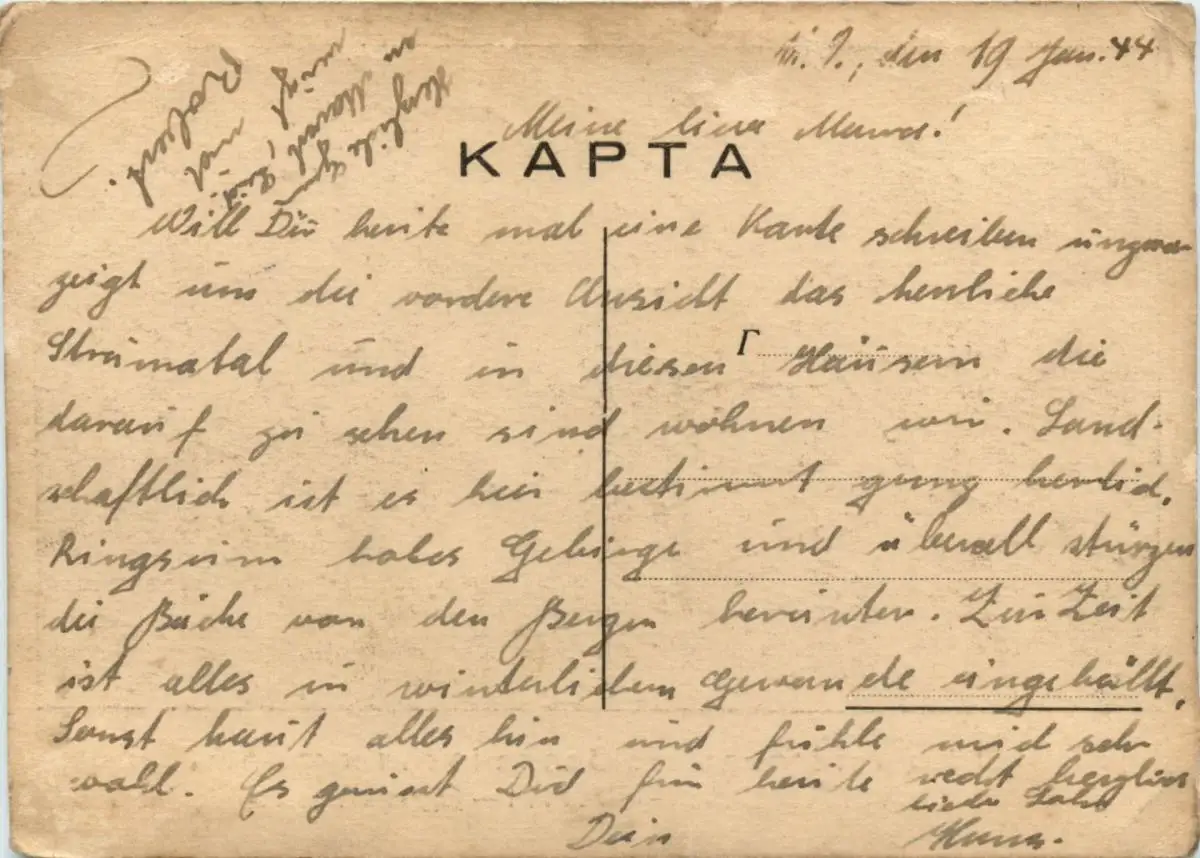 den 19 Jan. 44
Meine liebe Mama!
КАРТА
Will Dir heute mal eine Karte schreiben
zeigt uns die vordere Ansicht das herrliche
Strumatal und in diesen Häusern die
Г
darauf zu sehen sind wohnen wir. Land-
schaftlich ist es hier bestimmt genug herrlich.
Ringsum hohes Gebirge und überall stürzen
die Bäche von den Bergen herunter. Zur Zeit
ist alles in winterlichem Gewande eingehüllt.
Sonst haut alles hin und fühle mich sehr
wohl. Es grüsst Dich für heute recht herzlich
Dein
Hans.